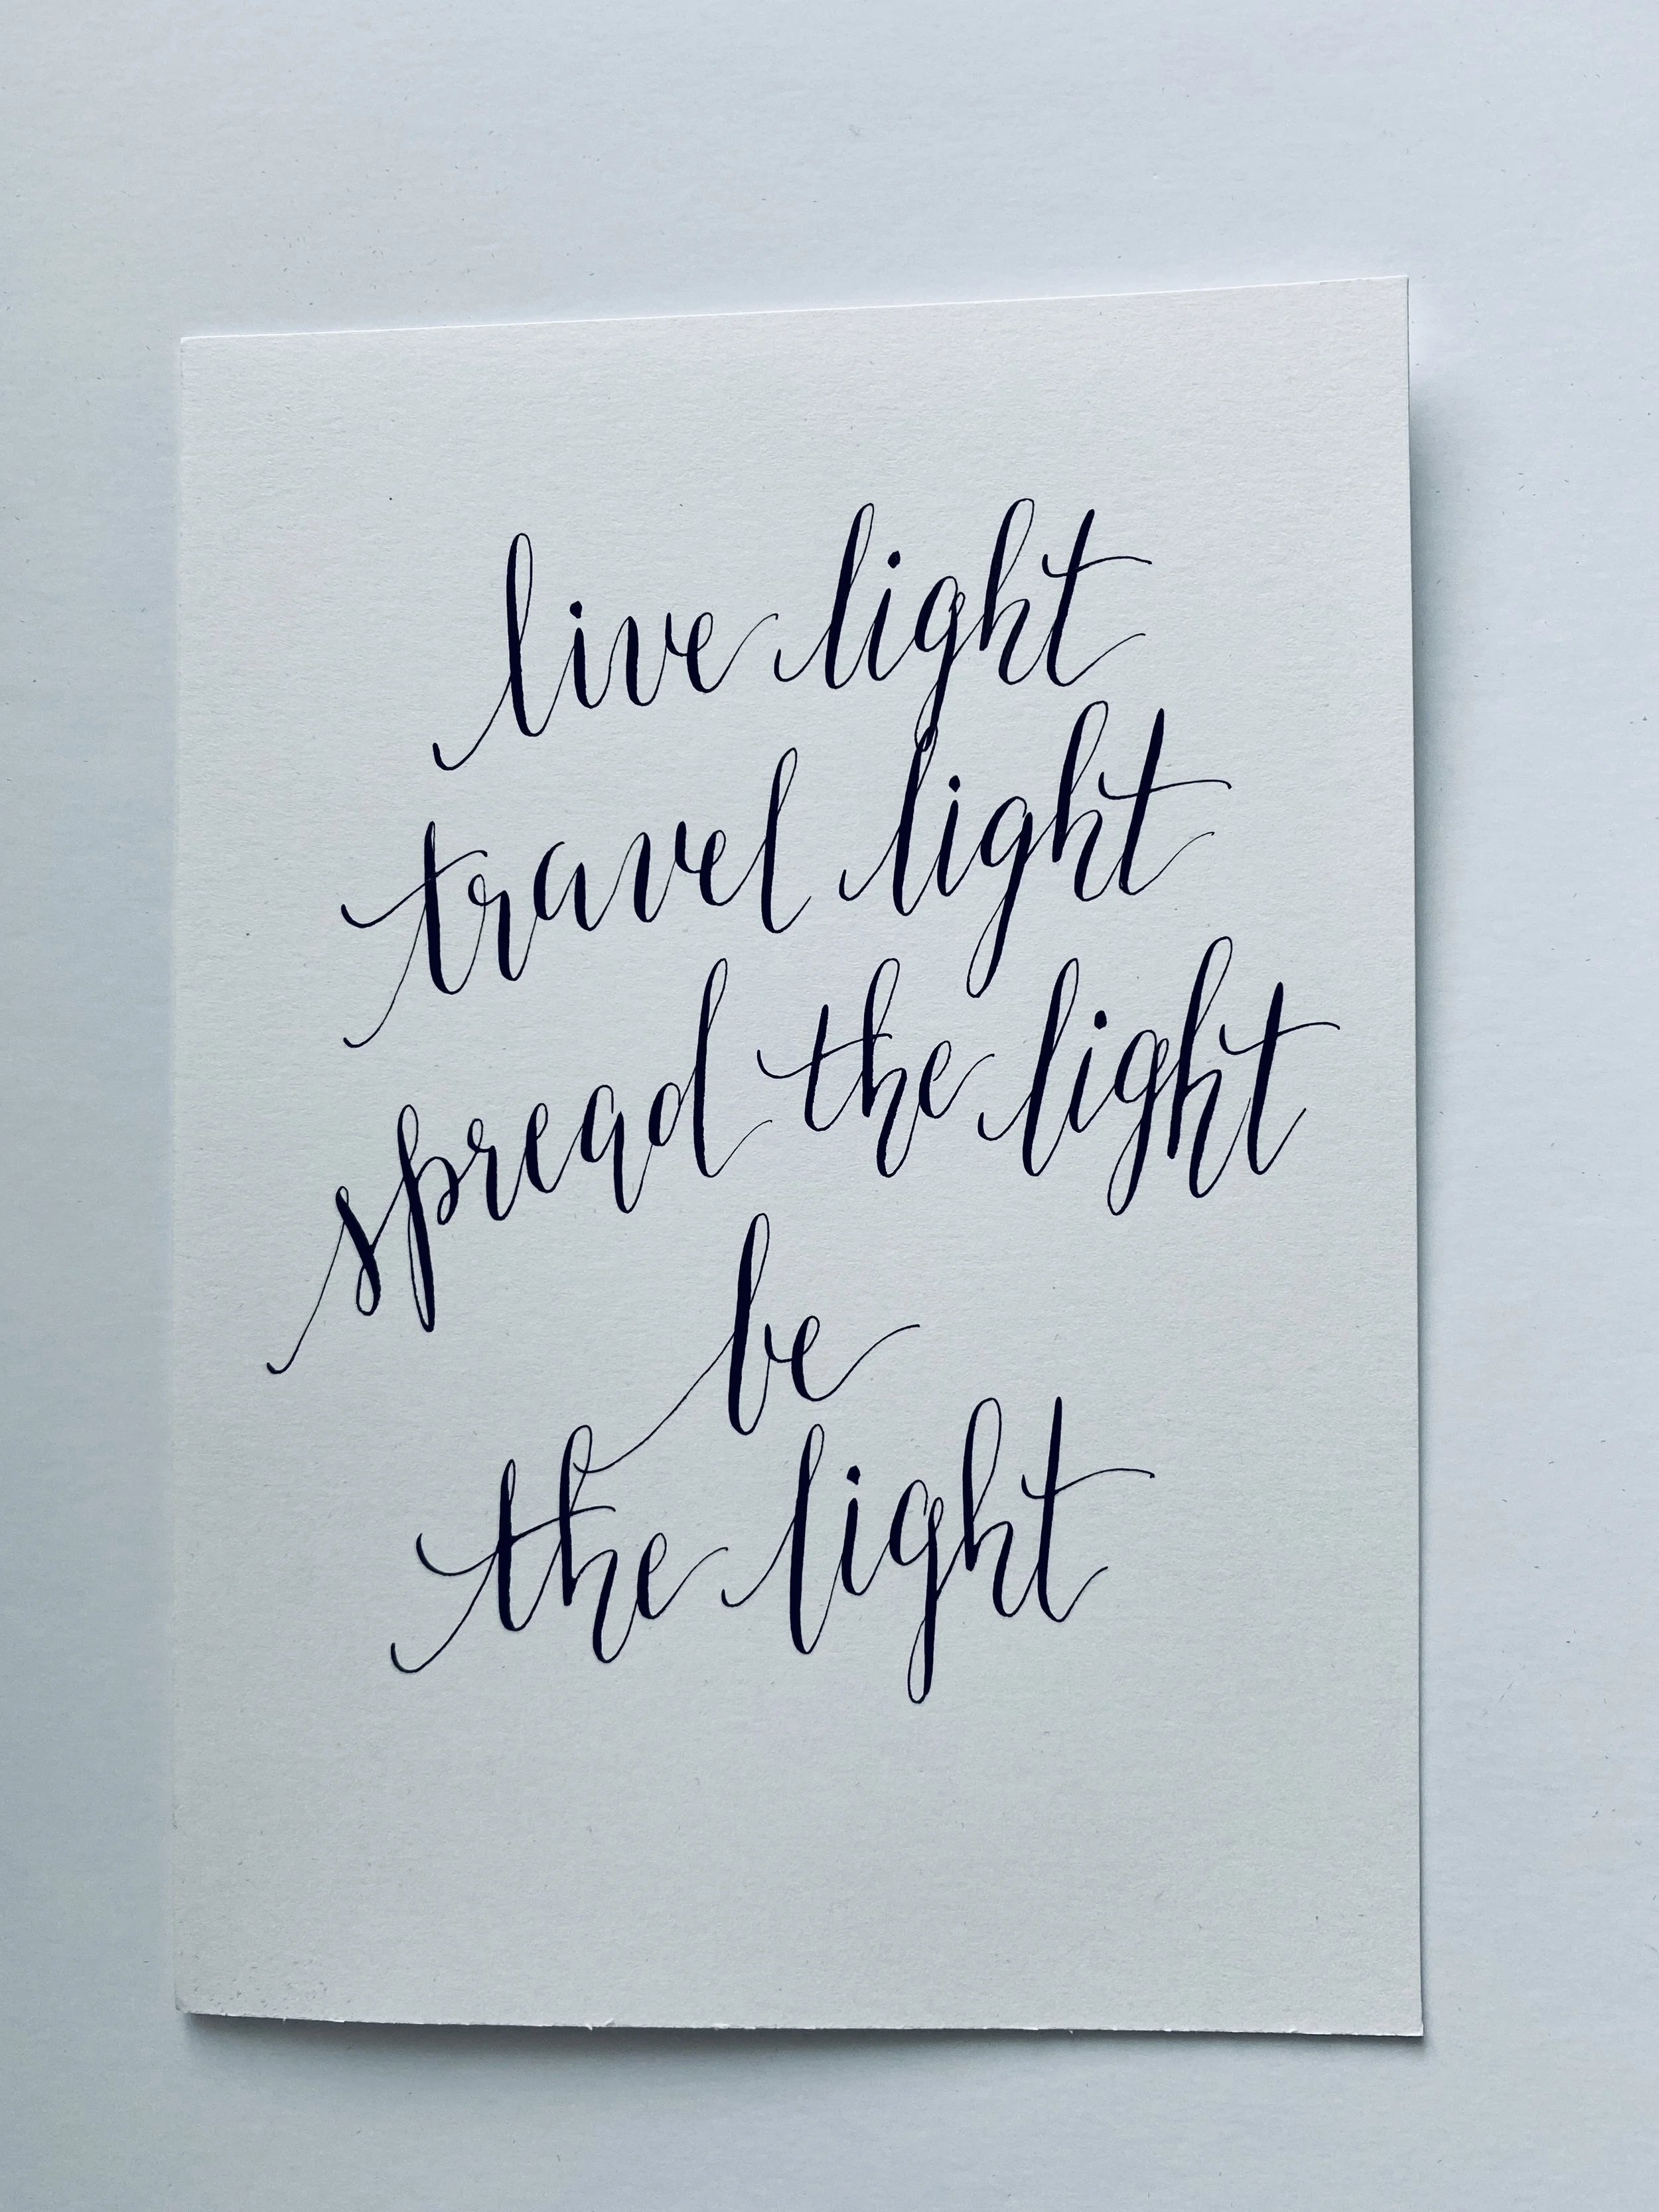 live light
travel light
spread the light
be
the light